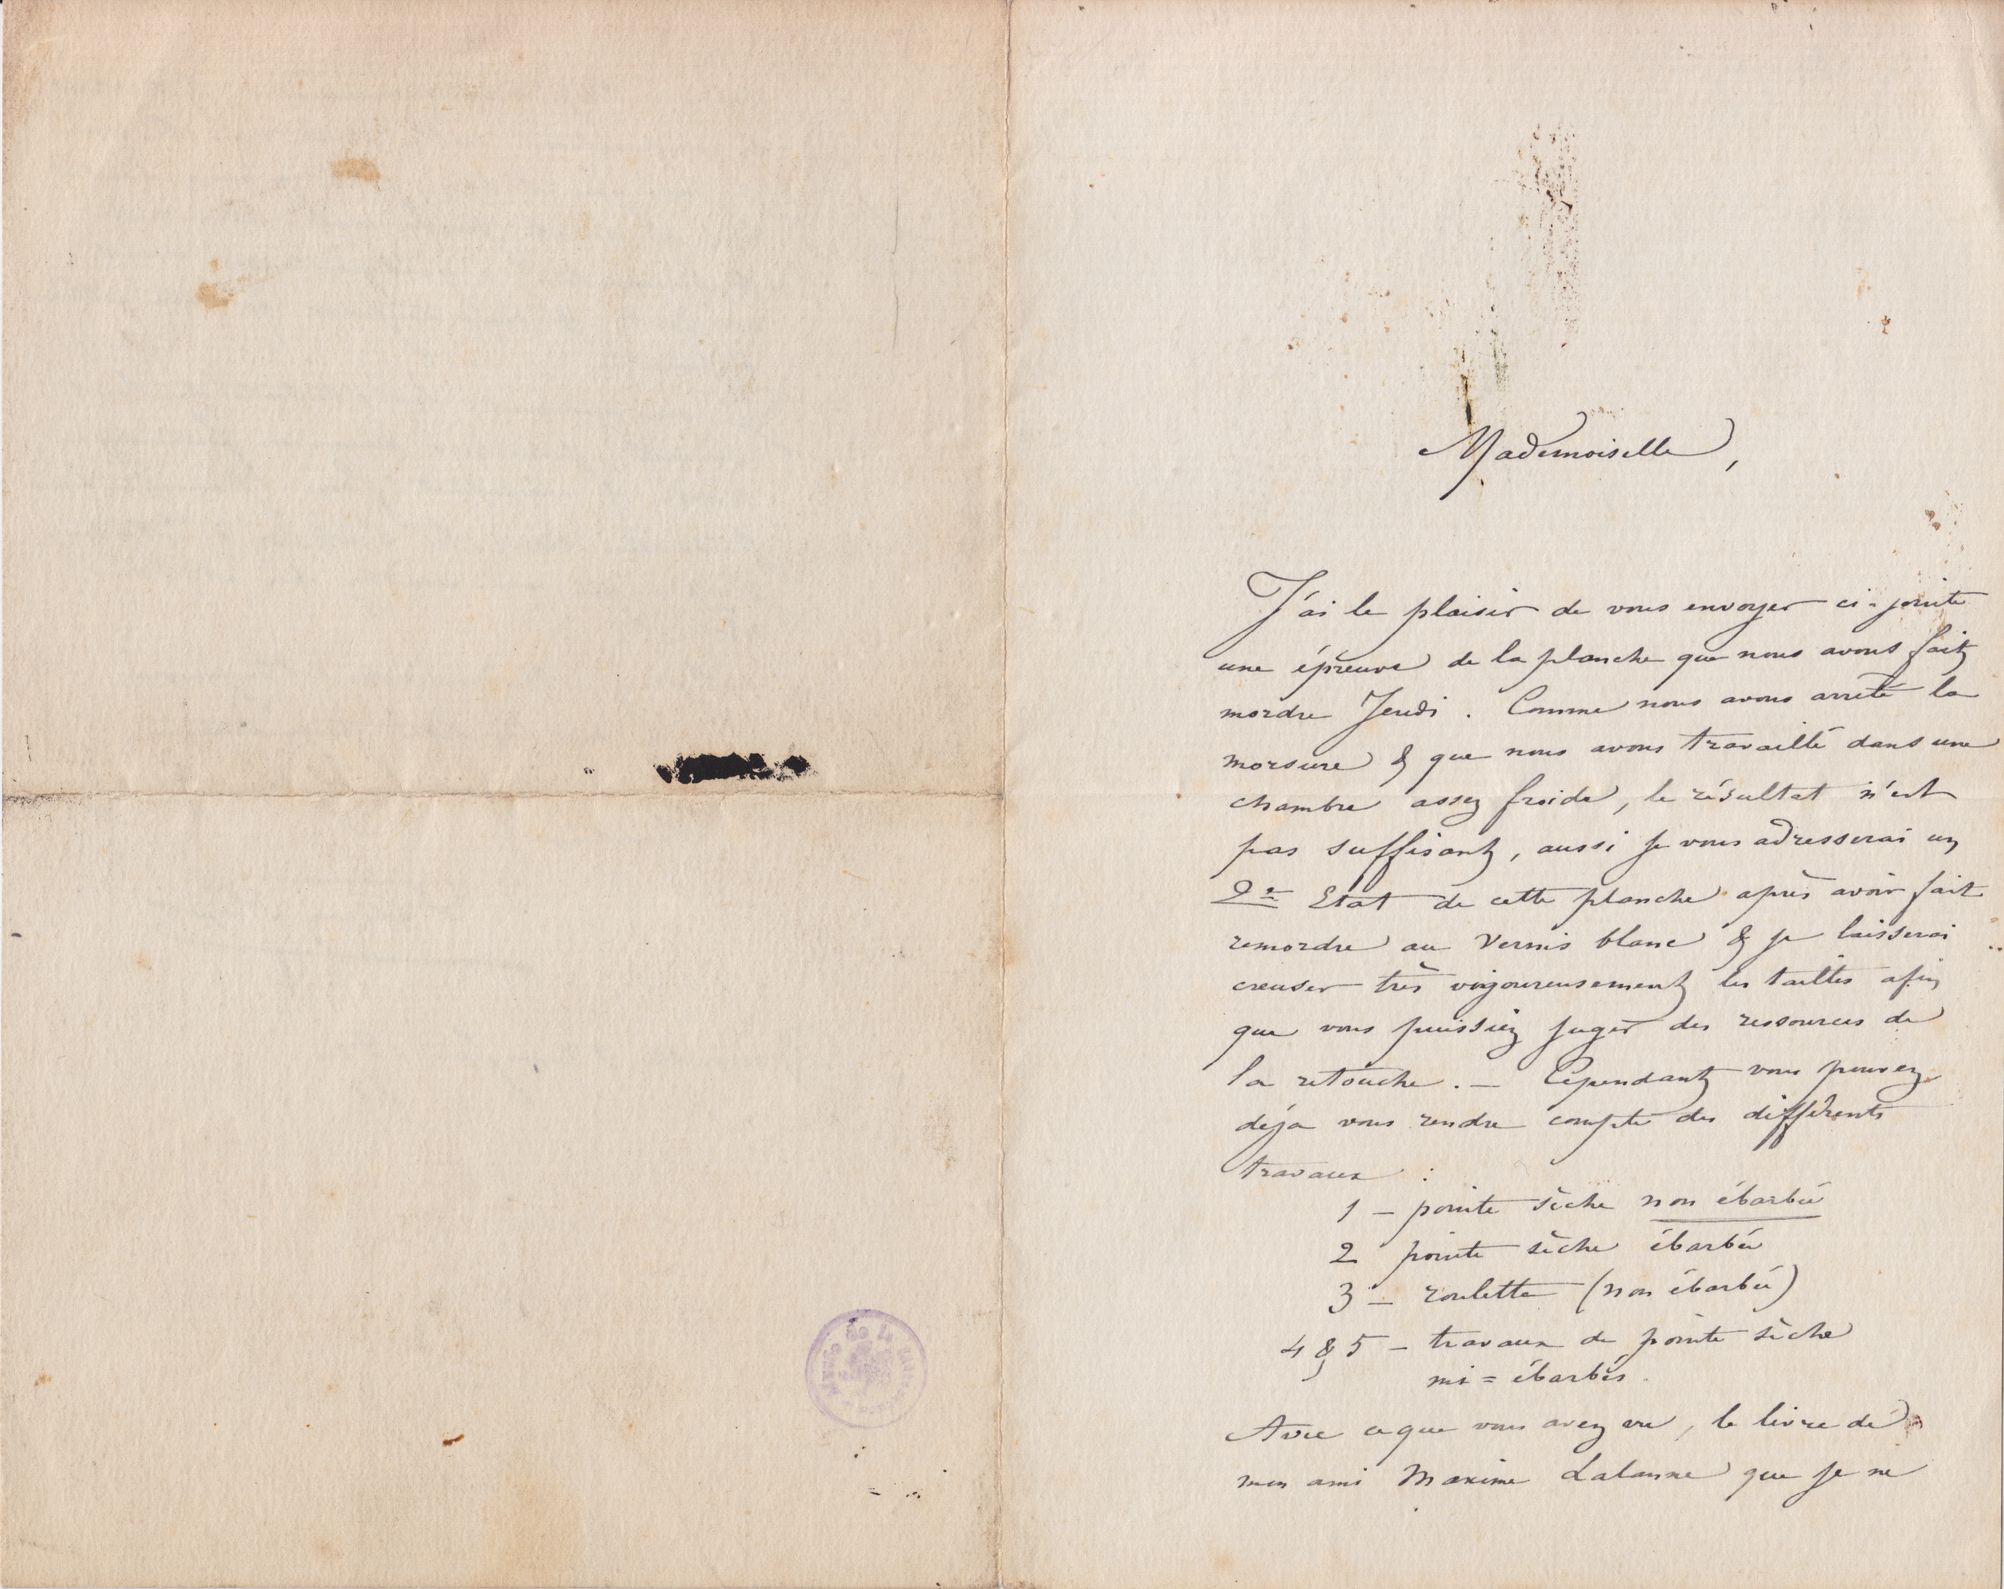 Mademoiselle,
J'ai le plaisir de vous envoyer ci-jointe
une épreuve de la planche que nous avons fait
mordre Jeudi. Comme nous avons arrêté la
morsure & que nous avons travaillé dans une
chambre assez froide, le résultat n'est
pas suffisant, aussi je vous adresserai un
2e Etat de cette planche après avoir fait
remordre au vernis blanc & je laisserai
creuser très vigoureusement les tailles afin
que vous puissiez juger des ressources de
la retouche. — Cependant vous pouvez
déja vous rendre compte des différents
travaux :
1 — pointe sèche non ébarbée
2 pointe sèche ébarbée
3 — roulette (non ébarbée)
4 & 5 — travaux de pointe sèche
mi = ébarbés.
Avec ce que vous avez vu, le livre de
mon ami Maxime Lalanne que je ne